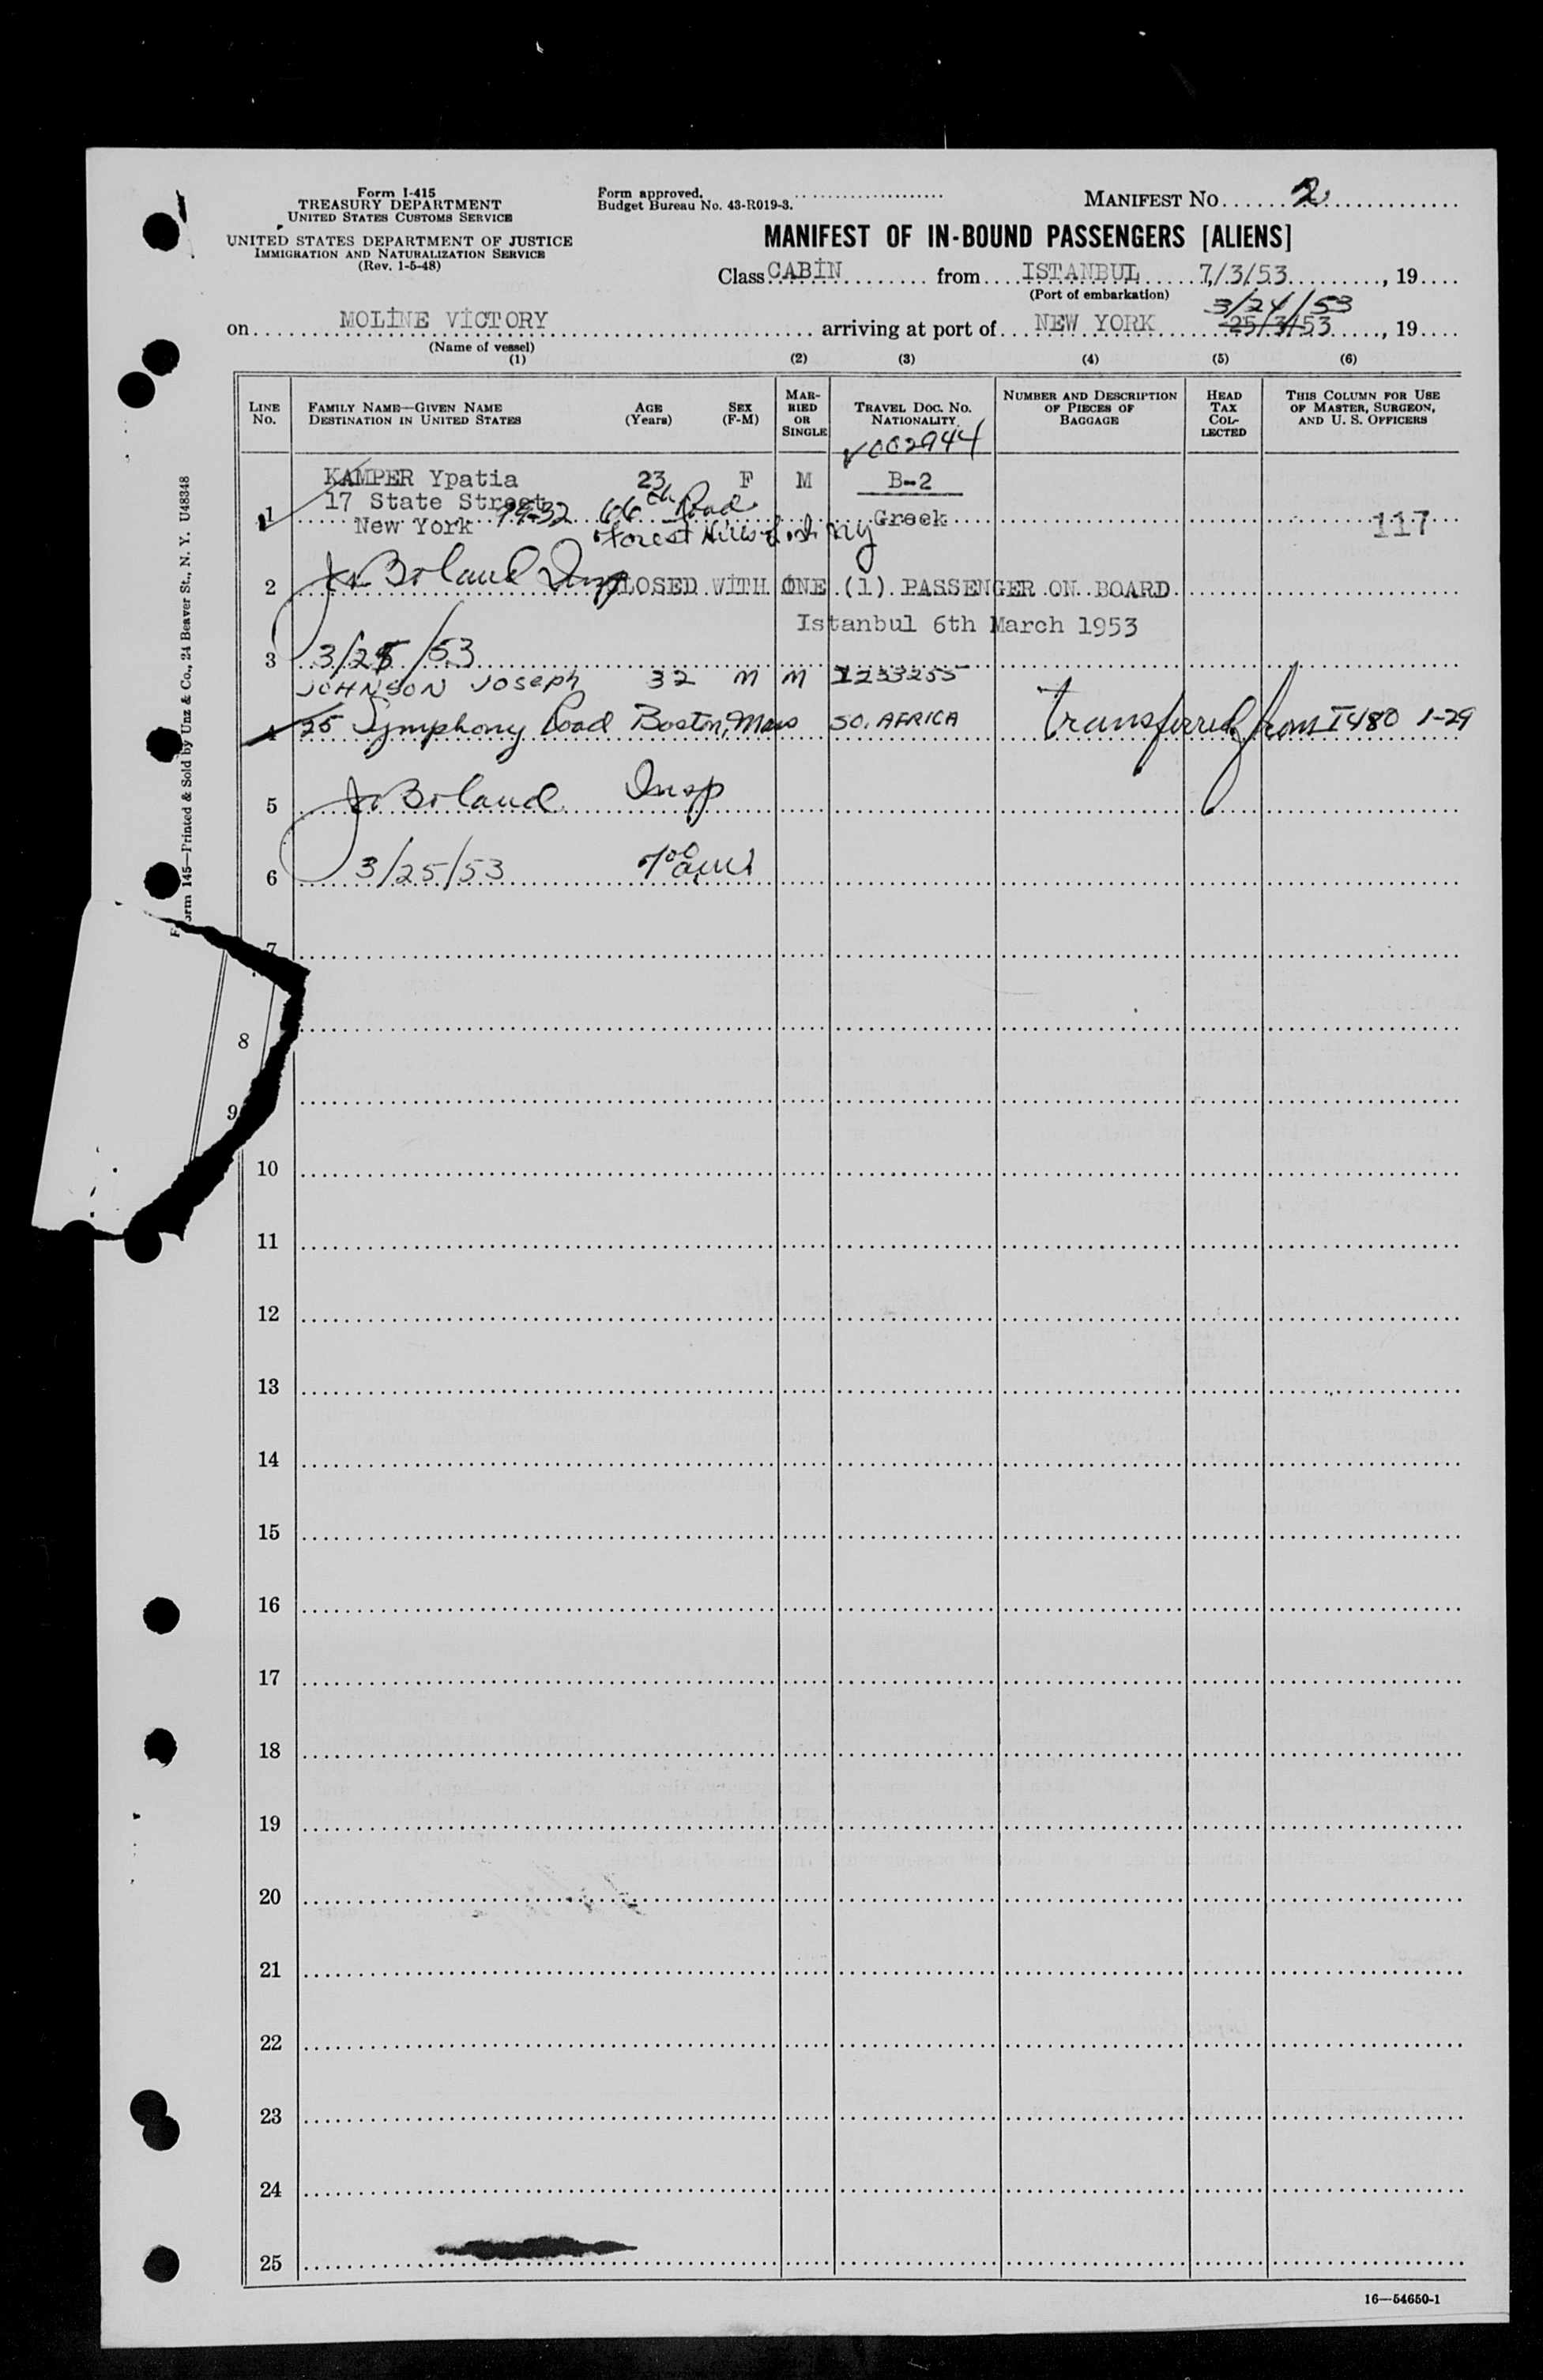 Form I-415
TREASURY DEPARTMENT
UNITED STATES CUSTOMS SERVICE
UNITED STATES DEPARTMENT OF JUSTICE
IMMIGRATION AND NATURALIZATION SERVICE
(Rev. 1-5-48)
Form approved.
Budget Bureau No. 43-R019-3.
MANIFEST NO. 2
MANIFEST OF IN-BOUND PASSENGERS [ALIENS]
Class CABİN from ISTANBUL 7/3/53, 19
(Port of embarkation)
3/24/53
on MOLİNE VİCTORY arriving at port of NEW YORK 25/3/53, 19
(Name of vessel)
(1) (2) (3) (4) (5) (6)
LINE No. FAMILY NAME—GIVEN NAME DESTINATION IN UNITED STATES AGE (Years) SEX (F-M) MARRIED OR SINGLE TRAVEL DOC. NO. NATIONALITY NUMBER AND DESCRIPTION OF PIECES OF BAGGAGE HEAD TAX COLLECTED THIS COLUMN FOR USE OF MASTER, SURGEON, AND U. S. OFFICERS
V002944
KAMPER Ypatia 23 F M B-2
17 State Street
1 New York 99-32 66th Road Greek 117
Forest Hills NY
2 Boland Insp CLOSED WİTH ONE (1) PASSENGER ON BOARD
Istanbul 6th March 1953
3 3/25/53
JOHNSON Joseph 32 M M I233255
4 25 Symphony Road Boston, Mass SO. AFRICA transferred from I 480 1-29
5 Boland Insp
6 3/25/53
7
8
9
10
11
12
13
14
15
16
17
18
19
20
21
22
23
24
25
16—54650-1
Form 145—Printed & Sold by Unz & Co., 24 Beaver St., N. Y. U48348